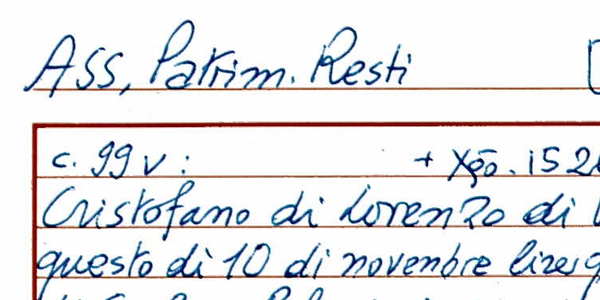 ASS, Patrim. Resti
c. 99 v : + Xp̄o. 152
Cristofano di Lorenzo di
questo dì 10 di novenbre lire
di